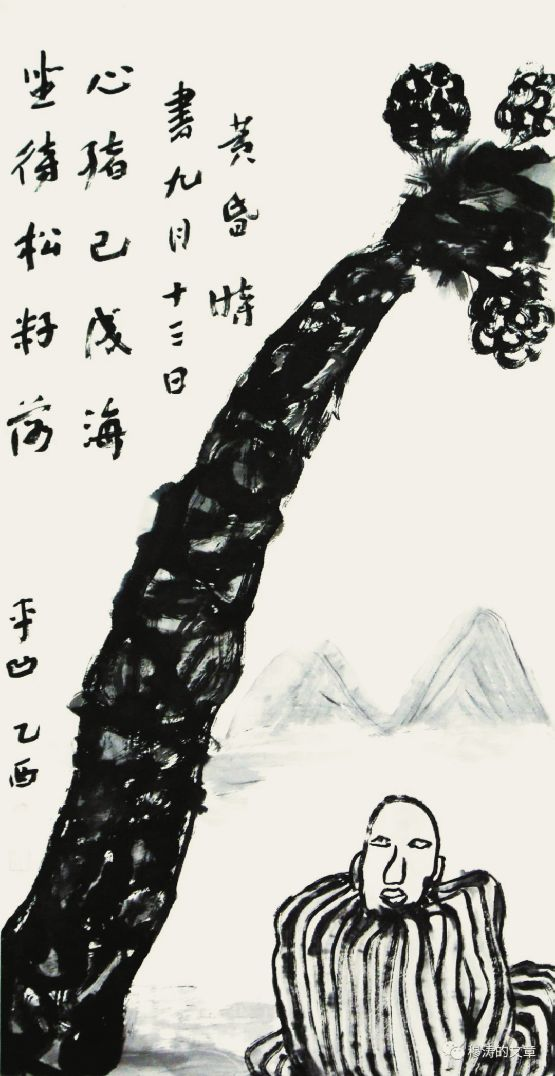 黃昏時
書九月十三日
心已成海
坐待松籽落
平凹 乙酉
穆涛的文章